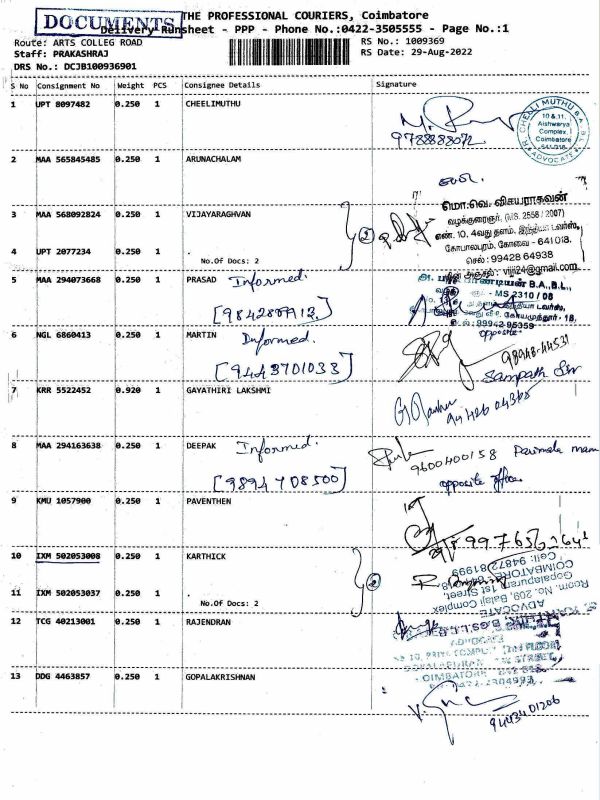 DOCUMENTS
THE PROFESSIONAL COURIERS, Coimbatore
Delivery Runsheet - PPP - Phone No.:0422-3505555 - Page No.:1
Route: ARTS COLLEG ROAD
RS No.: 1009369
Staff: PRAKASHRAJ
RS Date: 29-Aug-2022
DRS No.: DCJB100936901
S No Consignment No Weight PCS Consignee Details Signature
1 UPT 8097482 0.250 1 CHEELIMUTHU
9788888072
CHELLI MUTHU B.A. B.L.
10 & 11,
Aishwarya
Complex,
Coimbatore
641 018
ADVOCATE
2 MAA 565845485 0.250 1 ARUNACHALAM
3 MAA 568092824 0.250 1 VIJAYARAGHVAN
2
மொ.வெ. விசயராகவன்
வழக்குரைஞர், (MS. 2558 / 2007)
எண். 10, 4வது தளம், இந்தியா டவர்ஸ்,
கோபாலபுரம், கோவை - 641 018.
செல் : 99428 64938
மின் அஞ்சல் : viji24@gmail.com
4 UPT 2077234 0.250 1 .
No.Of Docs: 2
5 MAA 294073668 0.250 1 PRASAD Informed.
B.A.,B.L.,
MS 2310 / 08
டவர்ஸ்,
கோயமுத்தூர் - 18.
செல் : 99942 95359
6 NGL 6860413 0.250 1 MARTIN Informed.
[9443701033]
opposite
98948-44531
Sampath
7 KRR 5522452 0.920 1 GAYATHIRI LAKSHMI
8 MAA 294163638 0.250 1 DEEPAK Informed.
[9894708500]
9600400158 Parimala mam
opposite office
9 KMU 1057900 0.250 1 PAVENTHEN
10 IXM 502053008 0.250 1 KARTHICK
2
ADVOCATE
Room. No. 209, Balaji Complex
Gopalapuram 1st Street,
COIMBATORE
Cell: 94872 81999
11 IXM 502053037 0.250 1 .
No.Of Docs: 2
12 TCG 40213001 0.250 1 RAJENDRAN
ADVOCATE
13 DDG 4463857 0.250 1 GOPALAKRISHNAN
9443401206